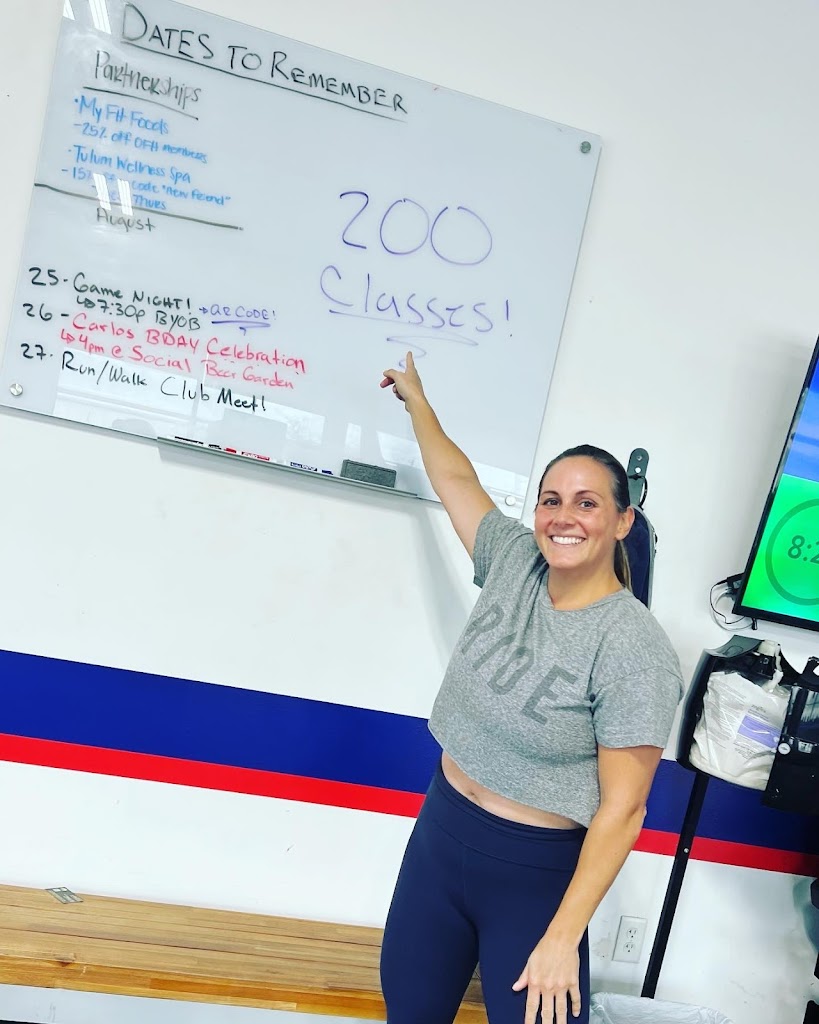 DATES TO REMEMBER
Partnerships
• My Fit Foods
- 25% off OFH members
• Tulum Wellness Spa
- 15% code "new friend"
Thurs
August
200
Classes!
25 - Game NIGHT!
↳ 7:30p BYOB → QR CODE!
26 - Carlos BDAY Celebration
↳ 4pm @ Social Beer Garden
27. Run/Walk Club Meet!
RIDE
8:2